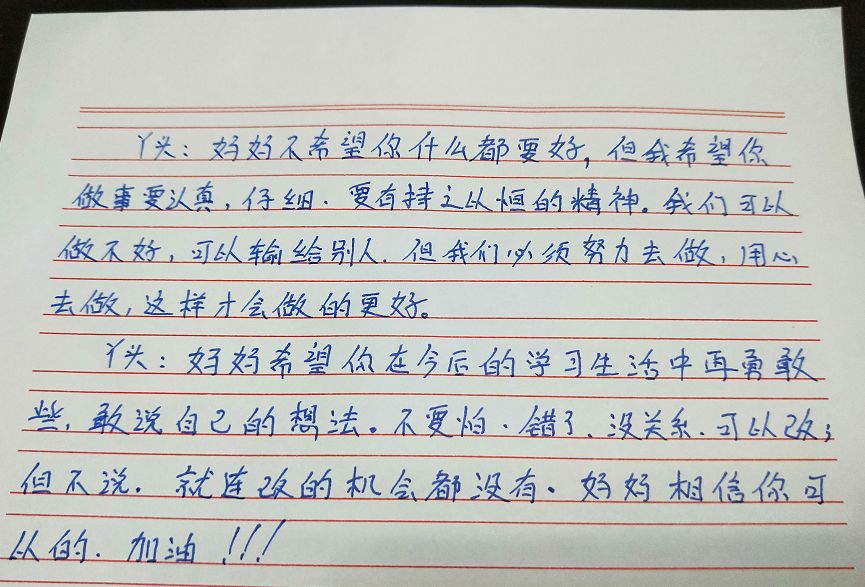 丫头：妈妈不希望你什么都要好，但我希望你
做事要认真，仔细．要有持之以恒的精神。我们可以
做不好，可以输给别人．但我们必须努力去做，用心
去做，这样才会做的更好。
丫头：妈妈希望你在今后的学习生活中再勇敢
些，敢说自己的想法。不要怕．错了、没关系．可以改；
但不说．就连改的机会都没有．妈妈相信你可
以的．加油！！！